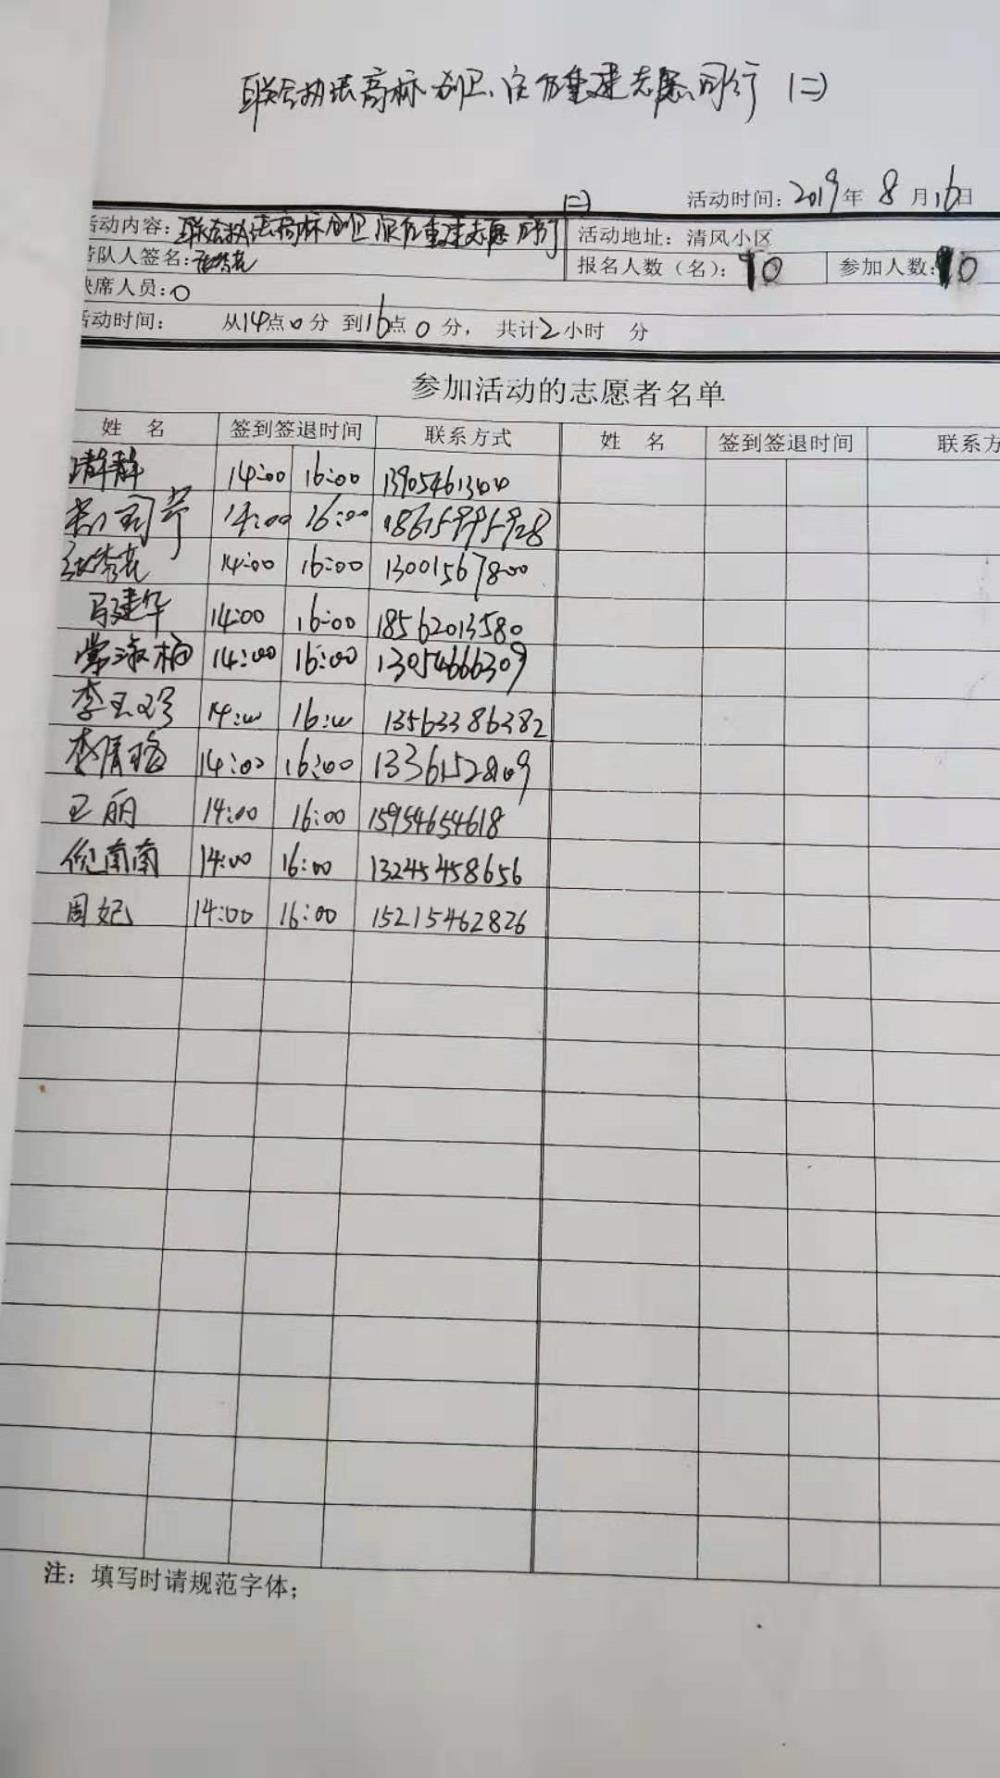 联合执法高标创卫 灾后重建志愿同行 (二)
活动时间: 2019年 8月16日
活动内容: 联合执法高标创卫 灾后重建志愿同行 (二)
活动地址: 清风小区
带队人签名: 张秀花
报名人数(名): 10
参加人数: 10
缺席人员: 0
活动时间: 从14点0分 到16点0分, 共计2小时 分
参加活动的志愿者名单
姓 名 签到签退时间 联系方式 姓 名 签到签退时间 联系方
静静 14:00 16:00 13905461344
14:00 16:00 18615995928
张秀花 14:00 16:00 13001567800
马建华 14:00 16:00 18562013580
常淑梅 14:00 16:00 13054666309
李玉珍 14:00 16:00 13563386382
李倩梅 14:00 16:00 13361528109
王丽 14:00 16:00 15954654618
倪南南 14:00 16:00 13245458656
周妃 14:00 16:00 15215462826
注: 填写时请规范字体;